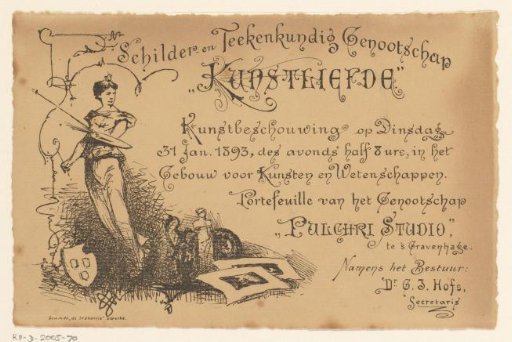 Schilder en Teekenkundig Genootschap
„KUNSTLIEFDE”
Kunstbeschouwing op Dinsdag
31 Jan. 1893, des avonds half 8 ure, in het
Gebouw voor Kunsten en Wetenschappen.
Portefeuille van het Genootschap
„PULCHRI STUDIO”,
te 's Gravenhage.
Namens het Bestuur:
Dr. G. J. Hofs,
Secretaris
RP-D-2005-70